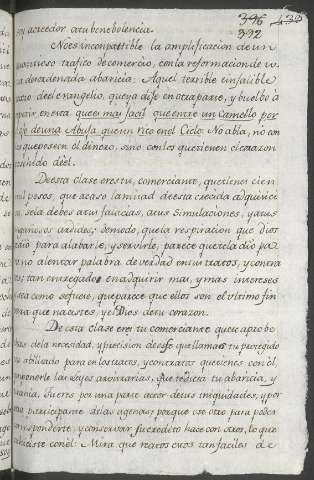 396 433
392
soy acreedor a tu benebolencia.
No es incompattible la amplificacion de un
quantioso trafico de comercio, con la reformacion de u
na desordenada abaricia: Aquel terrible e infalible
del evangelio, que ya dije en otra parte, y buelbo à
en esta que es mas facil que entre un Camello por
de una Abuja que un rico en el Cielo: No abla, no con
que poseen el dinero, sino con los que tienen el corazon
dèl.
De esta clase eres tu, comerciante, que tienes cien
mil pesos, que acaso la mitad de esta crecida adquisici
on, se la debes a tus falacias, a tus simulaciones, y a tus
ardides; de modo, que la respiracion que Dios
para alabarle, y servirle, parece que te la diò pa
ra no alentar palabra de verdad en tus tratos, y contra
tos; tan entregado en adquirir mas, y mas intereses
como se fuese, que parece que ellos son el ultimo fin
para que naciste, y el Dios de tu corazon.
De esta clase ere tu comerciante que te aprobe
chas de la necesidad, y precision de ese que llamas tu protegido
ò abilitado para en los tratos, y contratos que tienes con èl,
ponerle las leyes arbitrarias, que te dicta tu abaricia, y
Tu eres por una parte actor de tus iniquidades, y por
otra participante de las agenas; porque ese otro para poder
corresponderte, y conservar su credito hace con otros, lo que
tu hiciste con èl: Mira que tratos estos tan faciles de